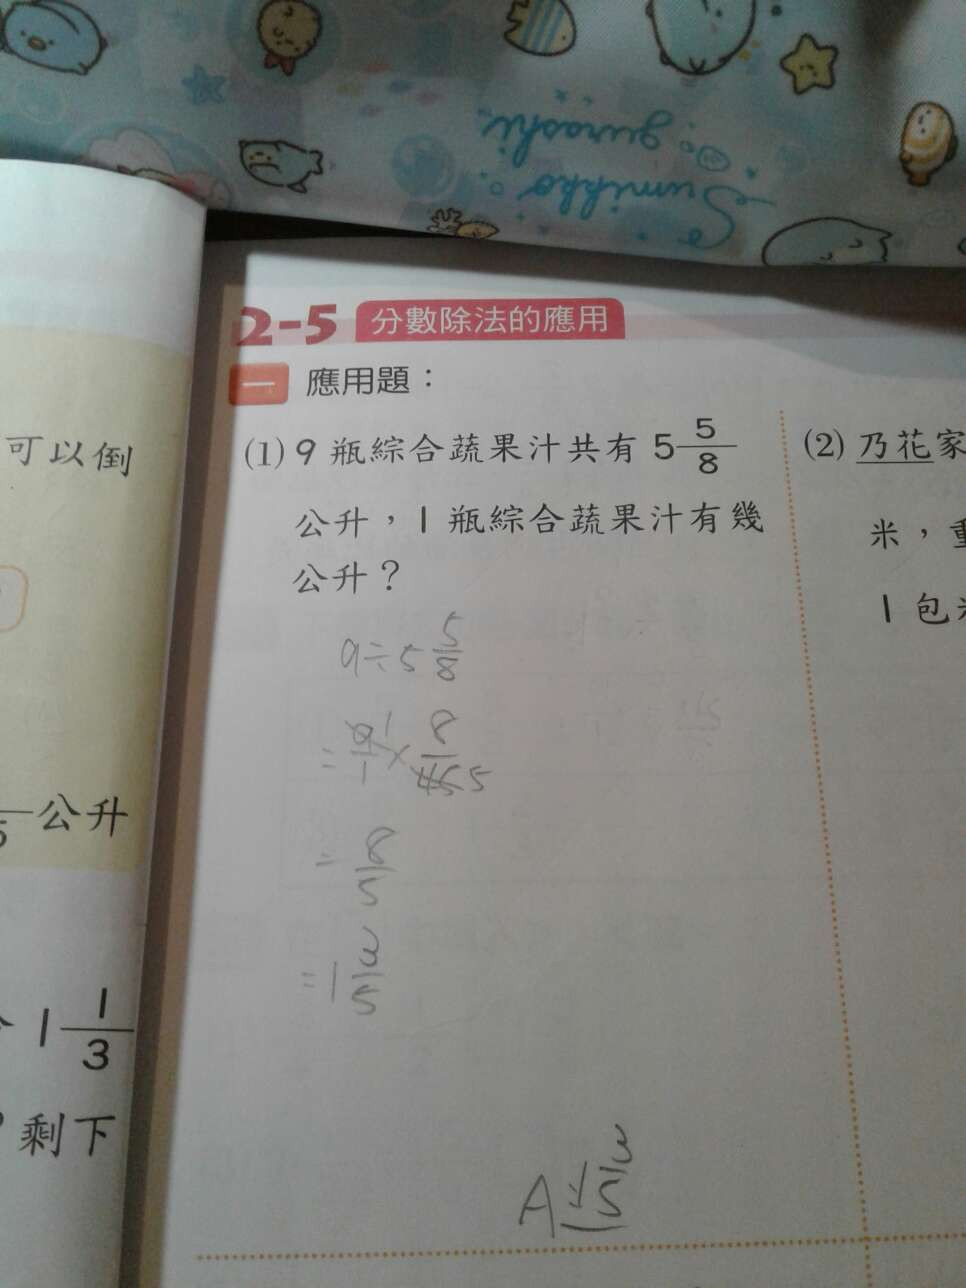 Sumikko
gurashi
2-5 分數除法的應用
一 應用題：
(1) 9 瓶綜合蔬果汁共有 5 5/8
公升，1 瓶綜合蔬果汁有幾
公升？
9÷5 5/8
= 9/1 1 × 8/45 5
= 8/5
= 1 3/5
A: 1 3/5
(2) 乃花家
米，重
1 包
可以倒
5 公升
1 1/3
剩下